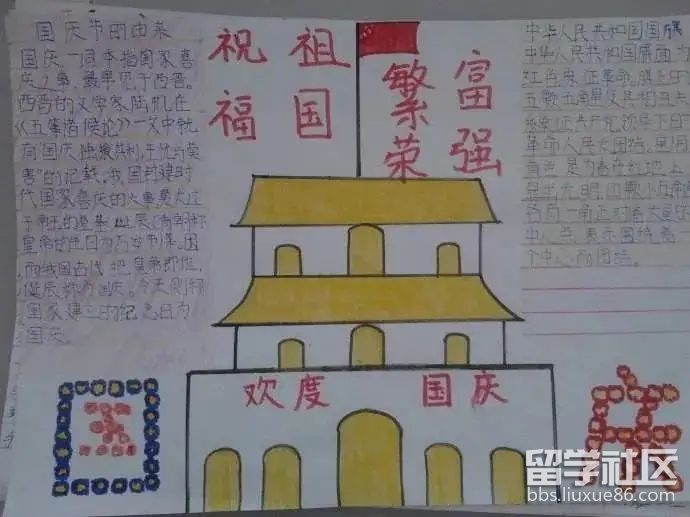 国庆节的由来
国庆一词本指国家喜
庆之事，最早见于西晋。
西晋的文学家陆机在
《五等诸侯论》一文中就
有国庆独飨其利，主忧莫与其
害”的记载。我国封建时
代国家喜庆的大事莫大过
于帝王的登基、诞辰
皇帝
而我国古代把皇帝即位、
诞辰称为国庆。今天
国家建立的纪念日为
国庆
祝祖
福国
繁富
荣强
中华人民共和国国旗
中华人民共和国旗面为
红色，象征革命。旗上
五颗五角星及其相互关
象征共产党领导下
革命人民大团结。星用
黄色是为着在红地上
显出光明，四颗小五角
各有一角正对着大星的
中心点，表示围绕着一
个中心而团结。
欢度 国庆
国
庆
留学社区
bbs.liuxue86.com